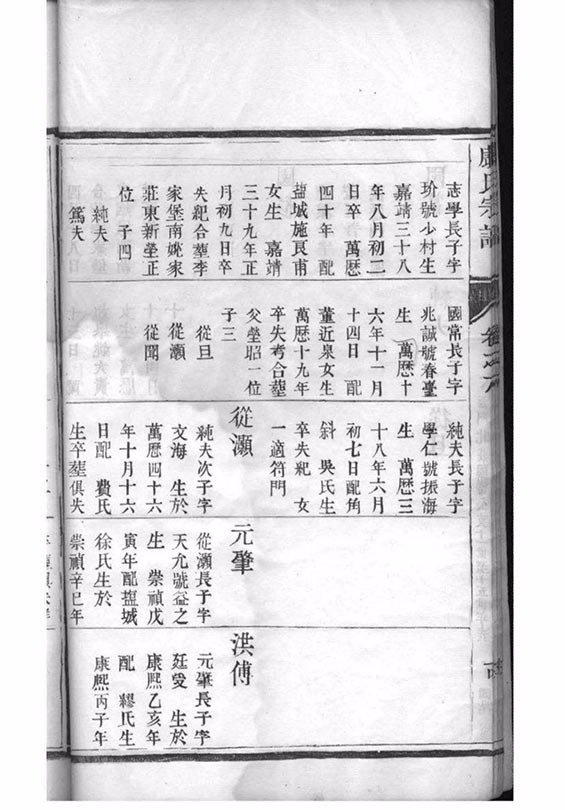 康氏宗譜
卷之八
志學長子字
玠號少村生
嘉靖三十八
年八月初二
日卒萬歷
四十年配
鹽城施良甫
女生嘉靖
三十九年正
月初九日卒
失紀合塟李
家堡南姚家
莊東新塋正
位子四
純夫
篤夫
國常長子字
兆誠號春臺
生萬歷十
六年十一月
十四日配
董近泉女生
萬歷十九年
卒失考合塟
父塋昭一位
子三
從旦
從灝
從聞
純夫長子字
學仁號振海
生萬歷三
十八年六月
初七日配角
斜吳氏生
卒失紀女
一適符門
從灝
純夫次子字
文海生於
萬歷四十六
年十月十六
日配費氏
生卒塟俱失
元肇
從灝長子字
天允號益之
生崇禎戊
寅年配鹽城
徐氏生於
崇禎辛巳年
洪傅
元肇長子字
廷愛生於
康熙乙亥年
配繆氏生
康熙丙子年